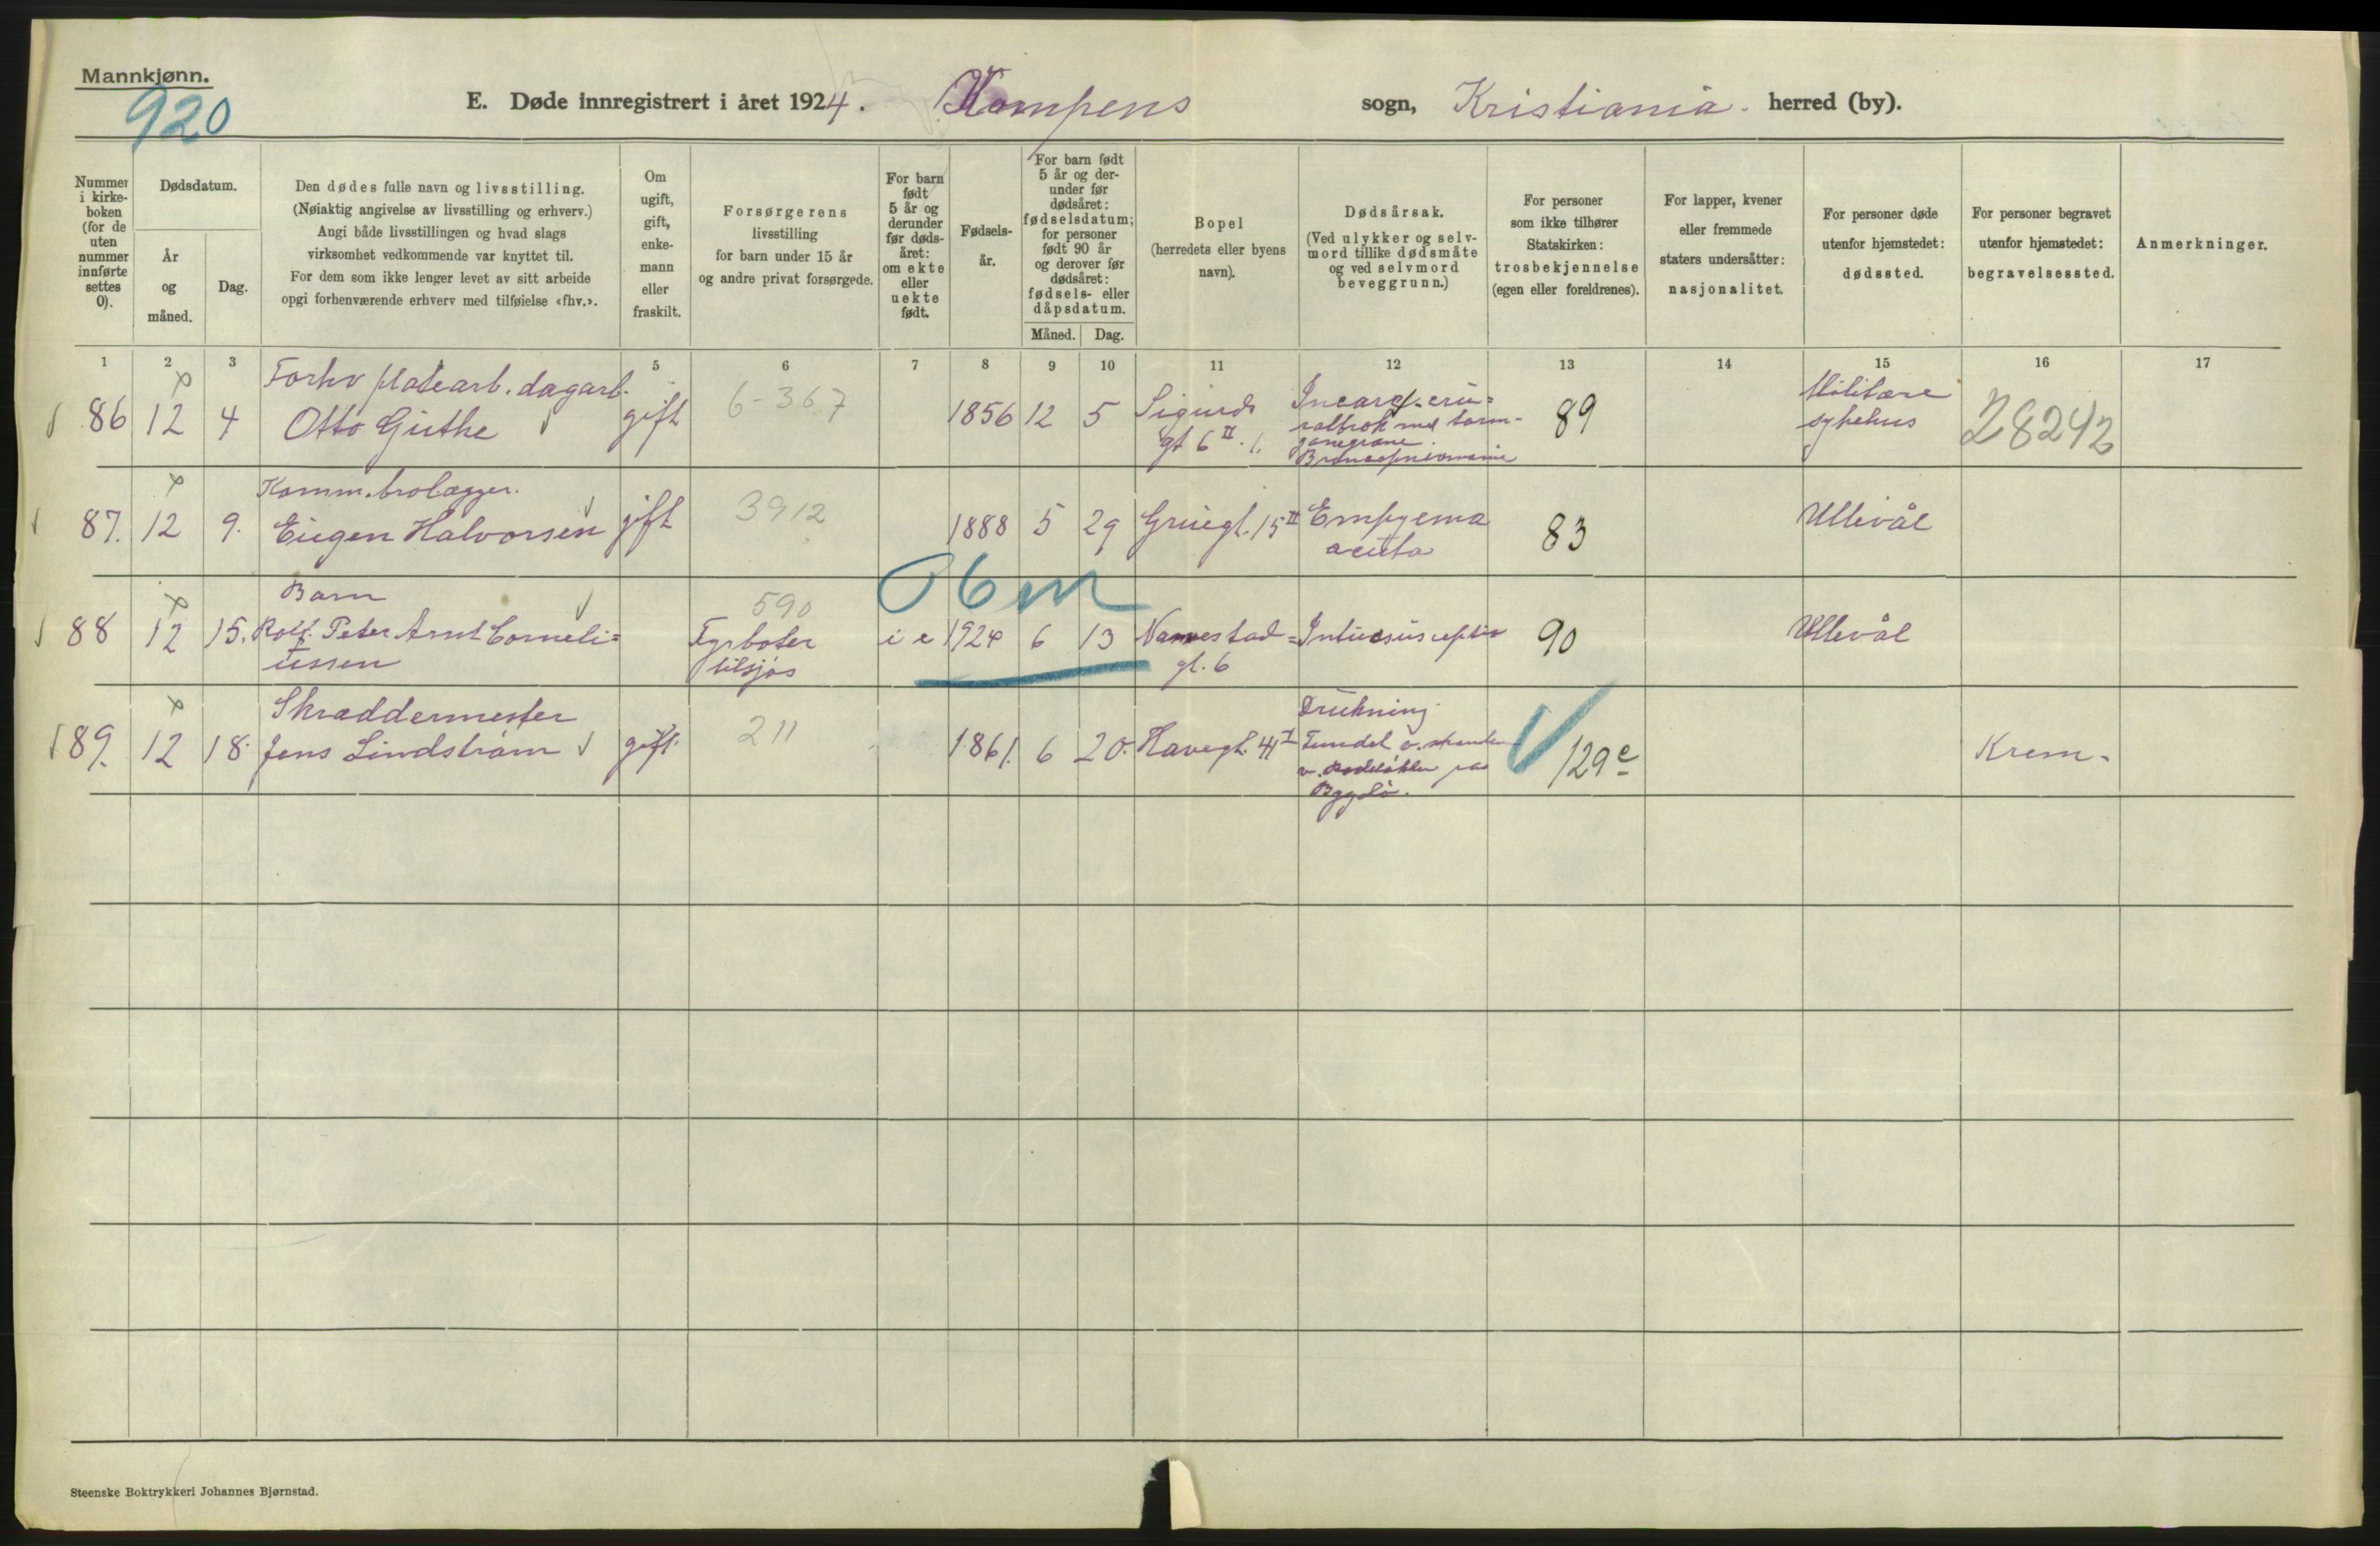 Mannkjønn.
920
E. Døde innregistrert i året 1924. Kampens sogn, Kristiania. herred (by).
Nummer i kirke- boken (for de uten nummer innførte settes 0).
Dødsdatum.
År og måned.
Dag.
Den dødes fulle navn og livsstilling.
(Nøiaktig angivelse av livsstilling og erhverv.)
Angi både livsstillingen og hvad slags
virksomhet vedkommende var knyttet til.
For dem som ikke lenger levet av sitt arbeide
opgi forhenværende erhverv med tilføielse «fhv.».
Om ugift, gift, enke- mann eller fraskilt.
Forsørgerens
livsstilling
for barn under 15 år
og andre privat forsørgede.
For barn født 5 år og derunder før døds- året: om ekte eller uekte født.
Fødsels- år.
For barn født 5 år og der- under før dødsåret: fødselsdatum; for personer født 90 år og derover før dødsåret: fødsels- eller dåpsdatum.
Måned. Dag.
Bopel
(herredets eller byens
navn).
Dødsårsak.
(Ved ulykker og selv-
mord tillike dødsmåte
og ved selvmord
beveggrunn.)
For personer
som ikke tilhører
Statskirken:
trosbekjennelse
(egen eller foreldrenes).
For lapper, kvener
eller fremmede
staters undersåtter:
nasjonalitet.
For personer døde
utenfor hjemstedet:
dødssted.
For personer begravet
utenfor hjemstedet:
begravelsessted.
Anmerkninger.
1 2 3 5 6 7 8 9 10 11 12 13 14 15 16 17
Forhv platearb. dagarb.
86 12 4 Otto Guthe gift 6-367 1856 12 5 Sigurds
gt 6 II.
89 Militære
sykehus 28242
Komm. brolægger.
87. 12 9. Eugen Halvorsen gift 3912 1888 5 29 Gruegt. 15 II Empyema
acuta 83 Ullevål
06m
Barn 590
88 12 15. Rolf Peter Arnt Corneli=
ussen Fyrbøter
tilsjøs i e 1924 6 13
gt. 6 Intussusceptio 90 Ullevål
Skræddermester
89. 12 18. Jens Lindstrøm gift. 211 1861. 6 20. Havegt. 4 I Drukning
Fundet v. stranden
v. paa
Bygdø. 129 c Krem-
Steenske Boktrykkeri Johannes Bjørnstad.